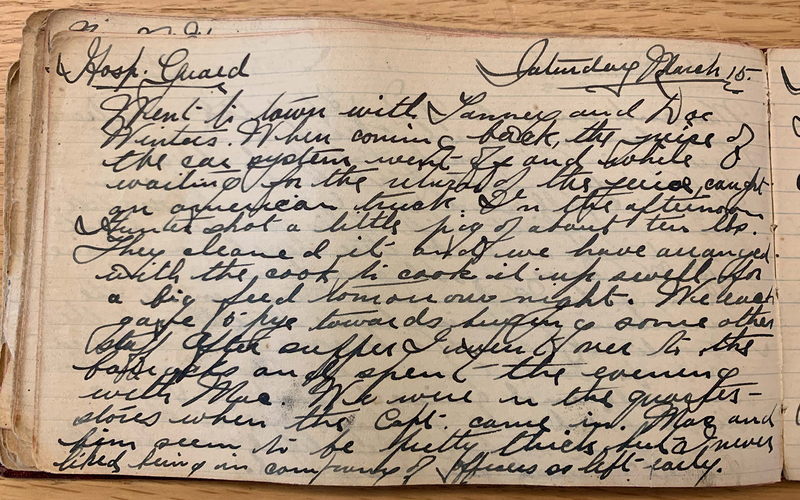 Hosp. Guard Saturday March 15.
Went to town with Tanner and Doc
Winters. When coming back, the juice of
the car system went off and while
waiting for the return of the juice, caught
an american truck. In the afternoon
Hunter shot a little pig of about ten lbs.
They cleaned it and we have arranged
with the cook to cook it up swell for
a big feed tomorrow night. We each
gave 5 towards buying some other
stuff. After supper I went over to the
and spent the evening
with Mac. We were in the quarter-
stores when the Capt. came in. Mac and
him seem to be pretty thick but I never
liked being in company of officers so left early.